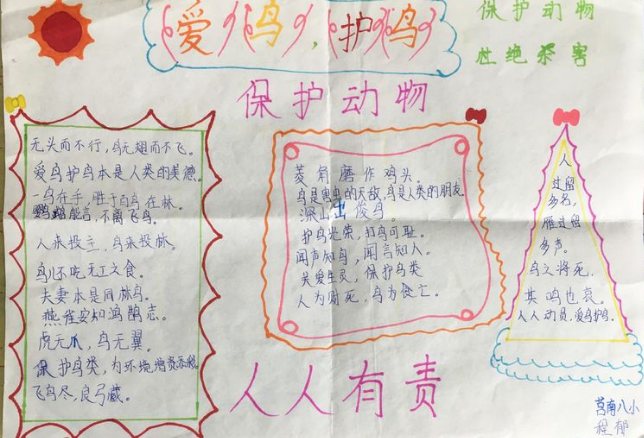 爱鸟，护鸟
保护动物
杜绝杀害
保护动物
无头而不行，鸟无翅而不飞。
爱鸟护鸟本是人类的美德。
一鸟在手，胜于百鸟在林。
鹦鹉能言，不离飞鸟。
人来投主，鸟来投林。
鸟儿不吃无工之食。
夫妻本是同林鸟。
燕雀安知鸿鹄志。
虎无爪，鸟无翼。
保护鸟类，为环境增资添
飞鸟尽，良弓藏。
菱角磨作鸡头。
鸟是害虫的天敌，鸟是人类的朋友
深山出俊鸟
护鸟光荣，打鸟可耻。
闻声知鸟，闻言知人。
关爱生灵，保护鸟类
人为财死，鸟为食亡。
人
过留
多名，
雁过留
多声。
鸟之将死，
其鸣也哀。
人人动员，爱鸟护鸟。
人人有责
莒南八小
程郁